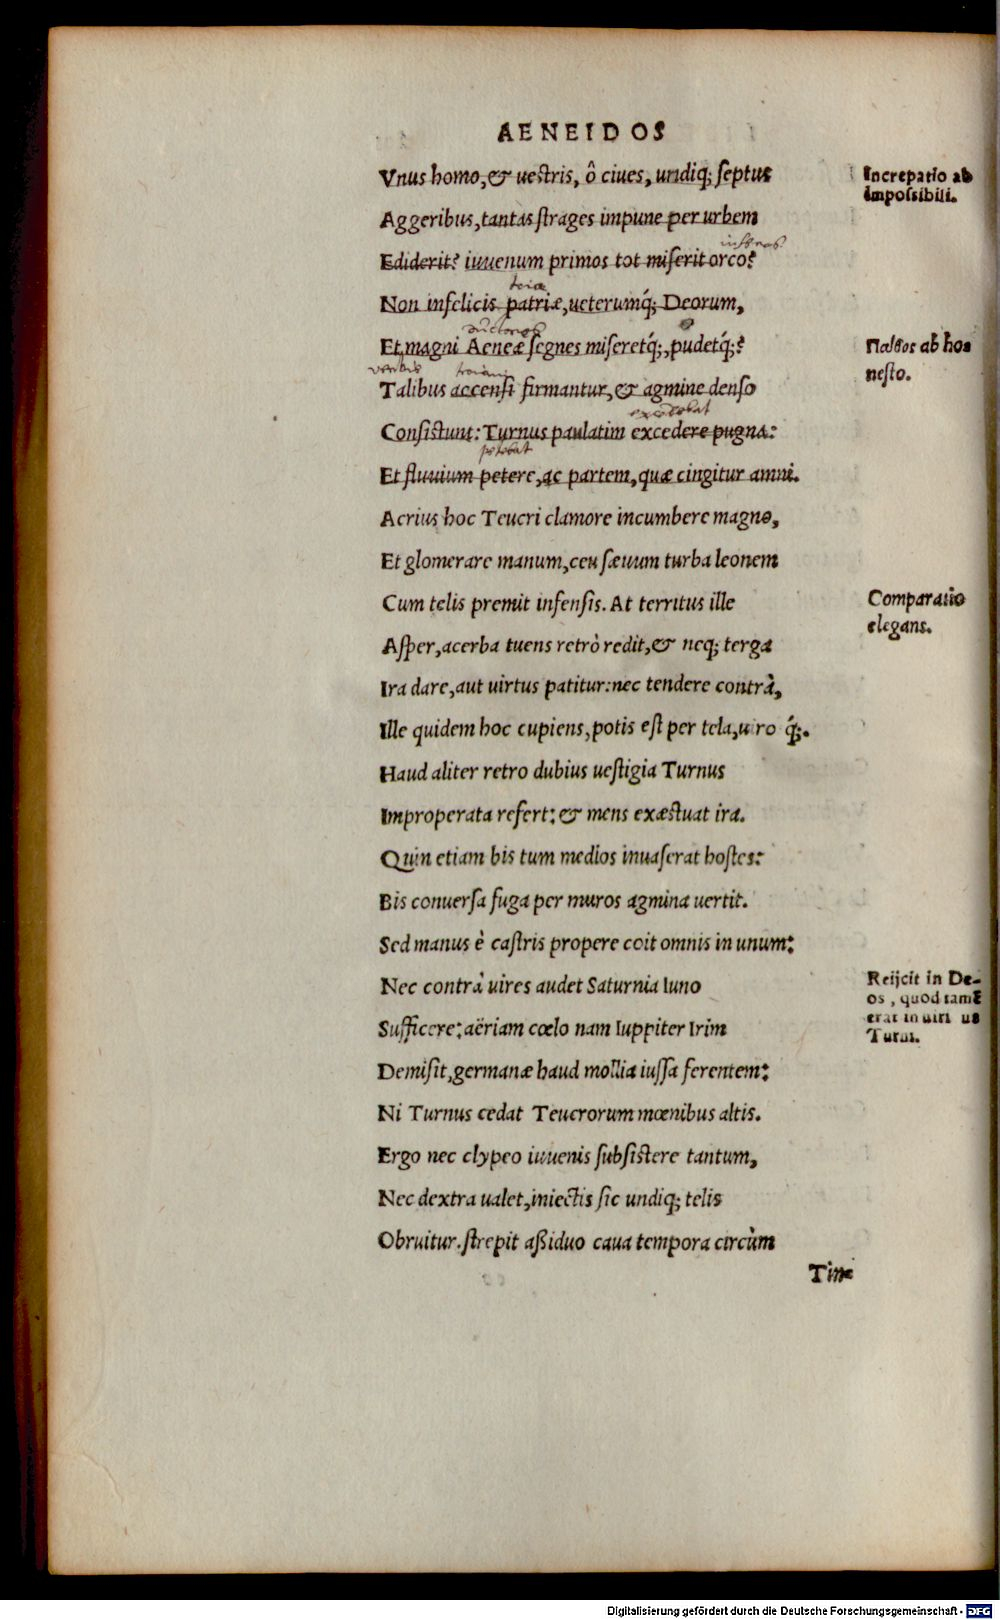 AENEIDOS
Vnus homo, & uestris, ô ciues, undiq; septus
Increpatio ab
impossibili.
Aggeribus, tantas strages impune per urbem
Ediderit? iuuenum primos tot miserit orco?
Non infelicis patriæ, ueterumq́; Deorum,
ductoris
Et magni Aeneæ segnes miseretq́;, pudetq́;?
Παθος ab ho=
nesto.
verbis troiani
Talibus accensi firmantur, & agmine denso
excedebat
Consistunt: Turnus paulatim excedere pugna:
petebat
Et fluuium petere, ac partem, quæ cingitur amni.
Acrius hoc Teucri clamore incumbere magno,
Et glomerare manum, ceu sæuum turba leonem
Cum telis premit infensis. At territus ille
Comparatio
elegans.
Asper, acerba tuens retrò redit, & neq; terga
Ira dare, aut uirtus patitur: nec tendere contrà,
Ille quidem hoc cupiens, potis est per tela, uiro q́;.
Haud aliter retro dubius uestigia Turnus
Improperata refert: & mens exæstuat ira.
Quin etiam bis tum medios inuaserat hostes:
Bis conuersa fuga per muros agmina uertit.
Sed manus è castris propere coit omnis in unum:
Nec contrà uires audet Saturnia Iuno
Reijcit in De-
os, quod tamẽ
erat in uirtus
Turni.
Sufficere: aëriam cœlo nam Iuppiter Irim
Demisit, germanæ haud mollia iussa ferentem:
Ni Turnus cedat Teucrorum mœnibus altis.
Ergo nec clypeo iuuenis subsistere tantum,
Nec dextra ualet, iniectis sic undiq; telis
Obruitur. strepit aßiduo caua tempora circùm
Tin=
Digitalisierung gefördert durch die Deutsche Forschungsgemeinschaft - DFG